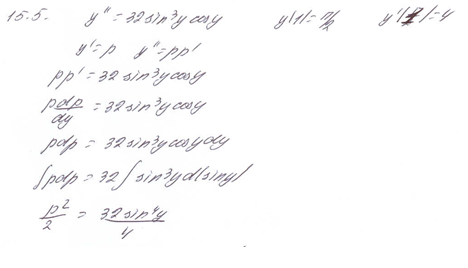 15.5. y'' = 32 sin³y cosy y(1) = π/2 y'(1) = 4
y' = p y'' = pp'
pp' = 32 sin³y cosy
pdp/dy = 32 sin³y cosy
pdp = 32 sin³y cosy dy
∫pdp = 32 ∫ sin³y d(siny)
p²/2 = 32 sin⁴y/4